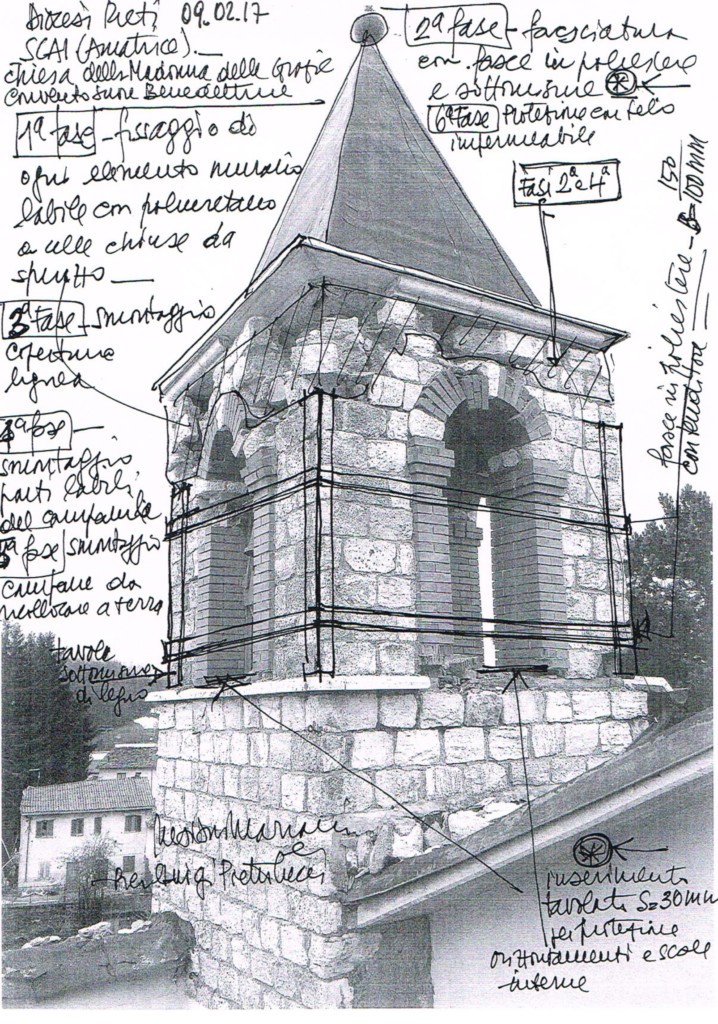 Diocesi Rieti 09.02.17
SCAI (Amatrice).
chiesa della Madonna delle Grazie
convento suore Benedettine
1ª fase - fissaggio di
ogni elemento murario
labile con poliuretano
a celle chiuse da
spruzzo
3ª fase - smontaggio
copertura
lignea
4ª fase -
smontaggio
parti labili
del campanile
5ª fase smontaggio
campane da
ricollocare a terra
tavole
sottomisure
di legno
2ª fase - fasciatura
con fasce in poliestere
e sottomisure *
6ª Fase Protezione con telo
impermeabile
Fasi 2ª e 4ª
fasce in poliestere - 150
100 mm
con tenditori
Pierluigi
*
inserimento
tavolato S=30mm
per protezione
orizzontamenti e scale
interne